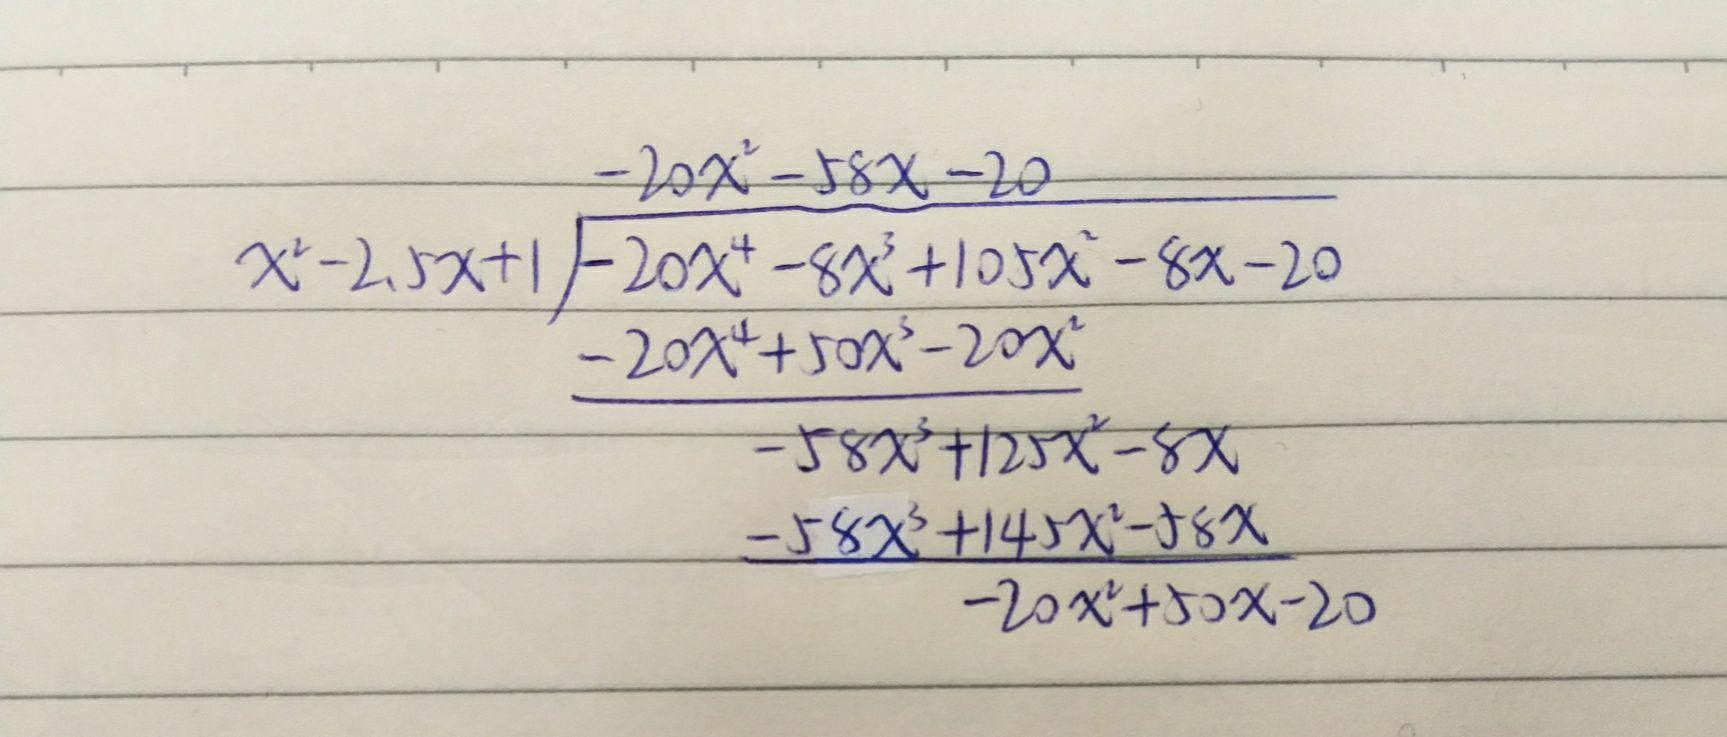 -20x² -58x -20
x²-2.5x+1 -20x⁴ -8x³ +105x² -8x -20
-20x⁴+50x³-20x²
-58x³+125x²-8x
-58x³+145x²-58x
-20x²+50x-20